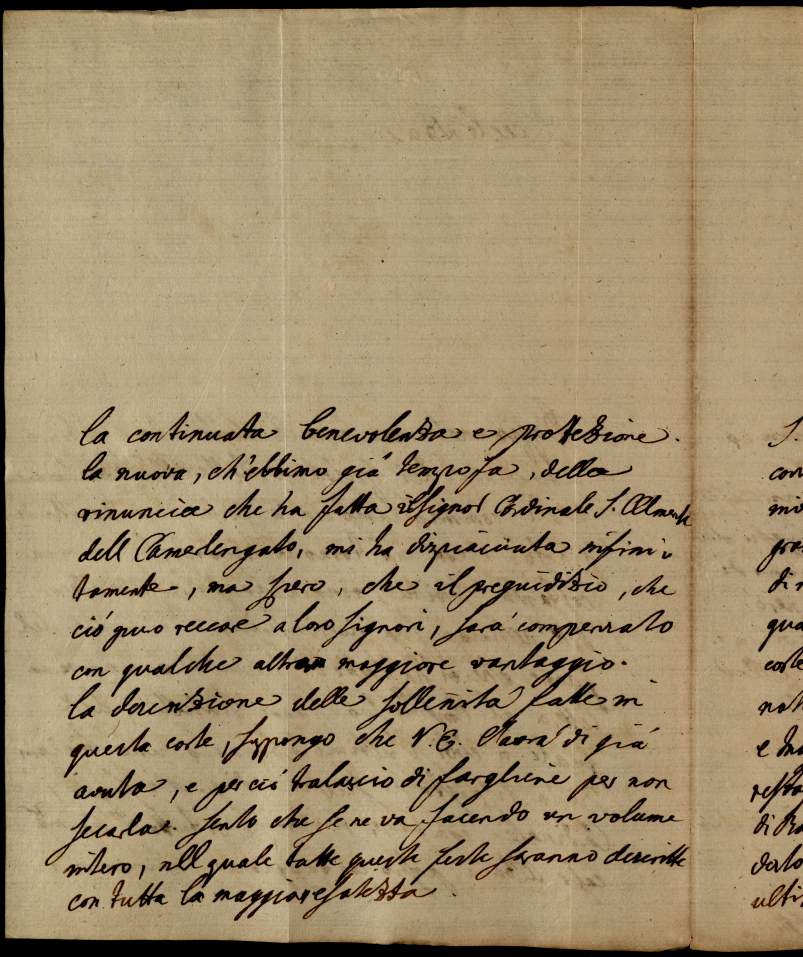 la continuata benevolenza e protezzione.
la nuova, ch'ebbimo già tempo fa, della
rinuncia che ha fatta il Signor Cardinale S. Clemente
dell Camerlengato, mi ha dispiaciuta infini
tamente, ma spero, che il preguidizio, che
ció puo reccare a loro Signori, sara' compensato
con qualche altro maggiore vantaggio.
la descrizione delle sollennita' fatte in
questa corte, suppongo che V.E. l'havra' di già
avuta, e perció tralascio di fargliene per non
secarla. sento che se ne va facendo un volume
intero, nell quale tutte queste feste saranno descritte
con tutta la maggior esatezza.
S.
con
mi
gra
di
qua
corte
not
e
resta
di Ra
dalo
ulti